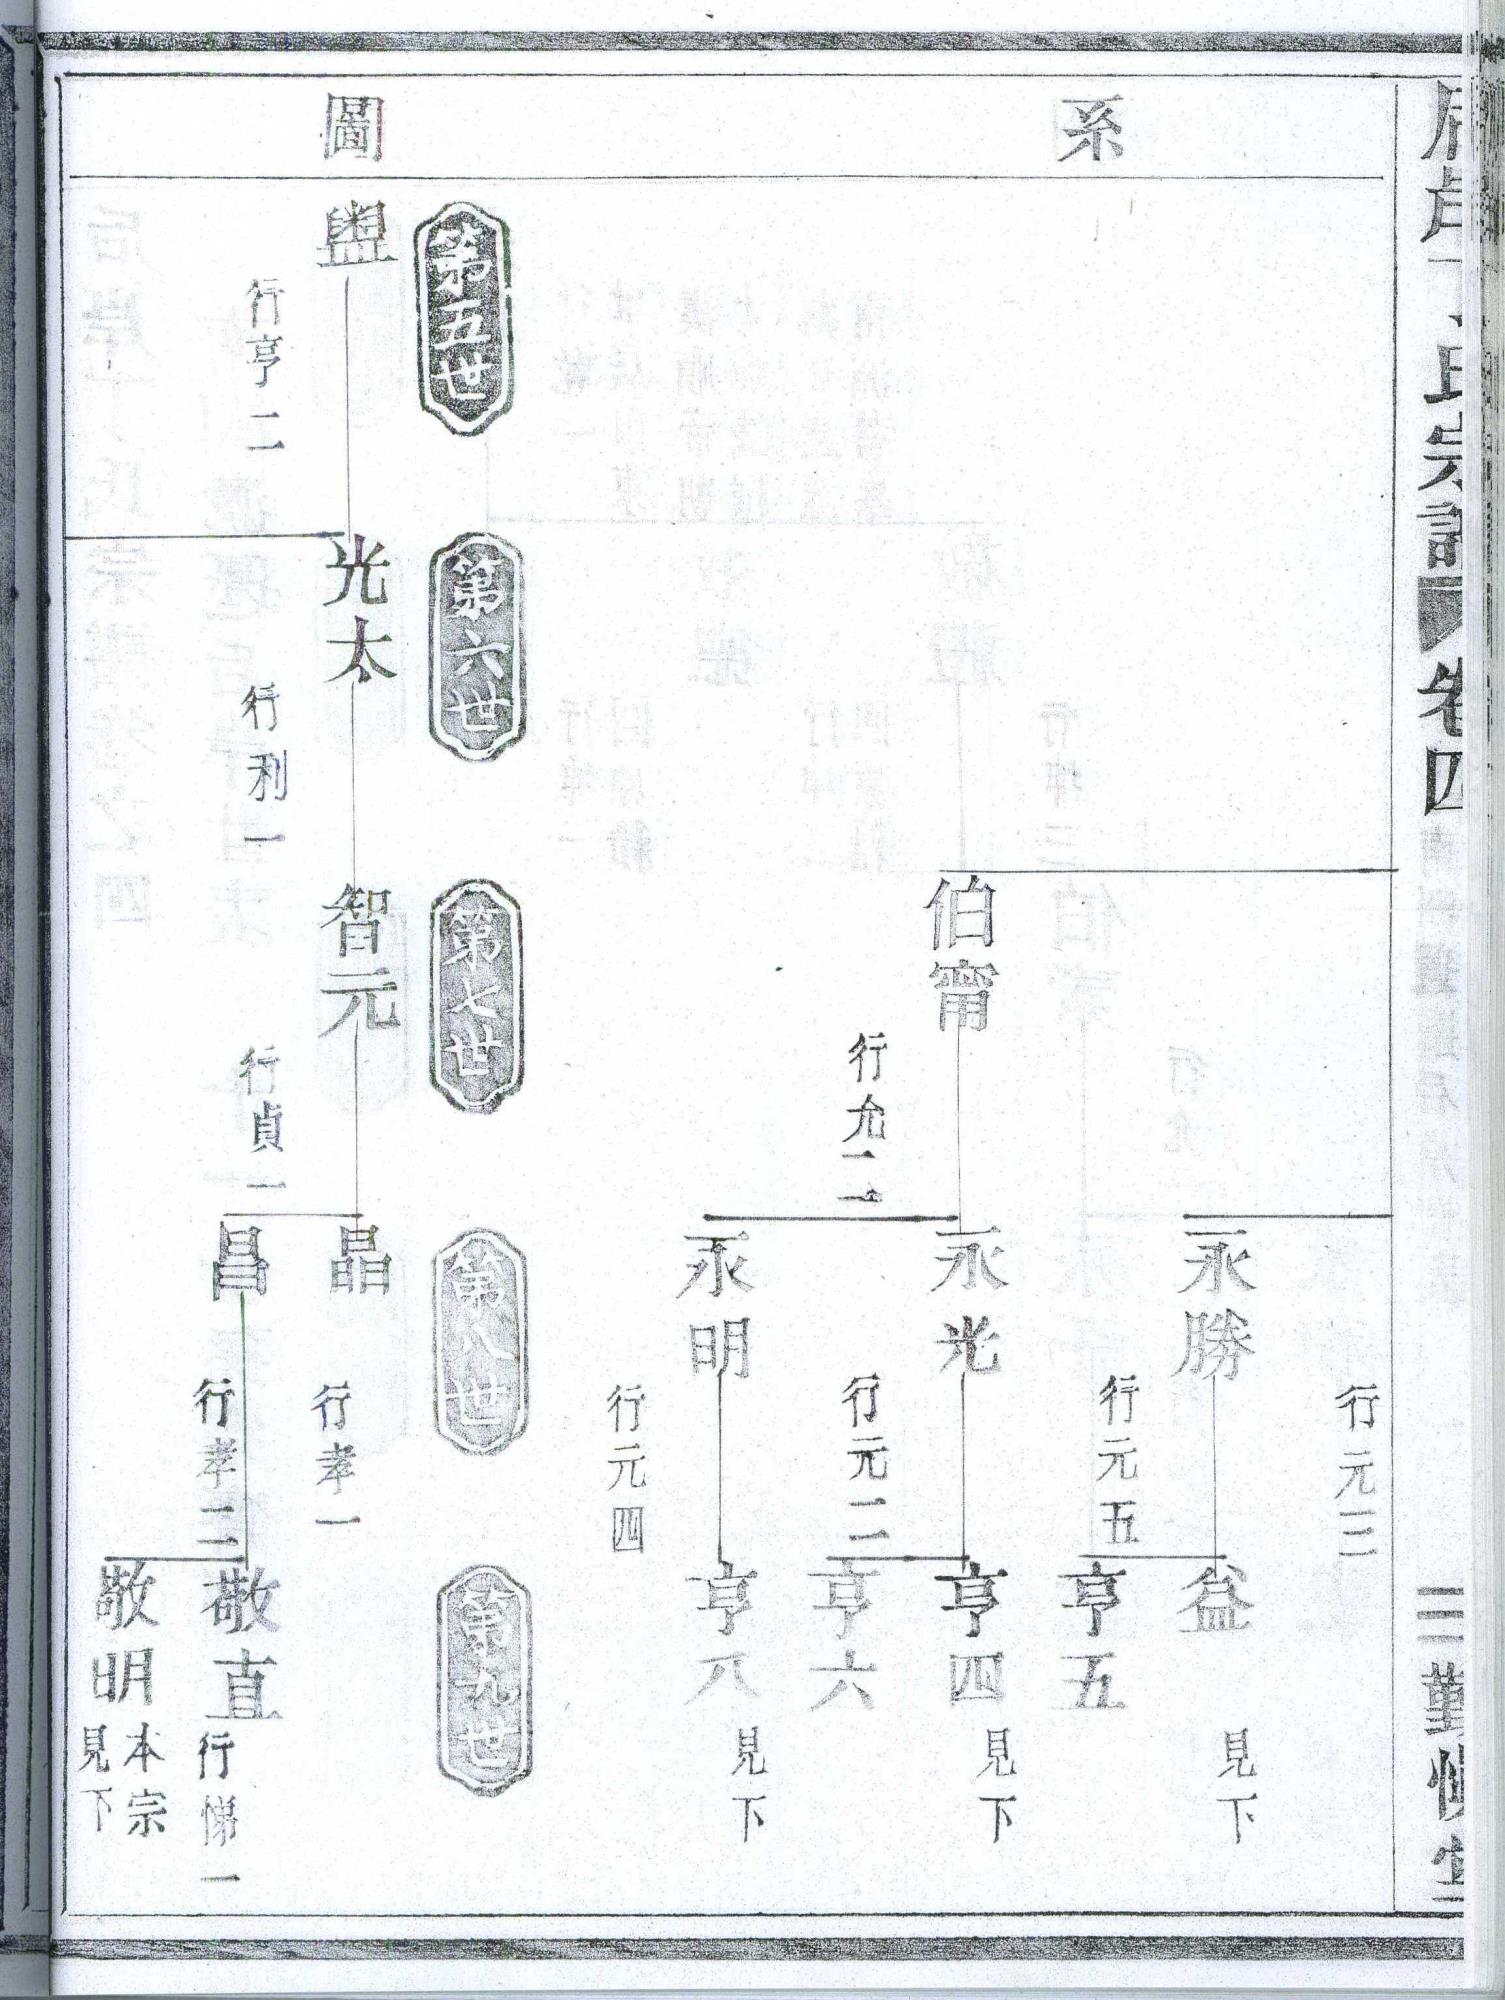 氏宗譜
卷四
三
勤慎堂
系
圖
伯甯
行允二
永勝
行元三
永光
行元五
永明
行元二
行元四
益
見下
亨五
亨四
見下
亨六
亨八
見下
第五世
第六世
第七世
第八世
第九世
行亨二
光太
行利一
智元
行貞一
晶
行孝一
昌
行孝二
敬直
行悌一
敬明
本宗
見下